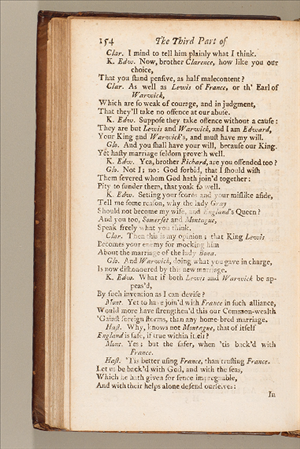 154 The Third Part of
Clar. I mind to tell him plainly what I think.
K. Edw. Now, brother Clarence, how like you our
choice,
That you stand pensive, as half malecontent?
Clar. As well as Lewis of France, or th' Earl of
Warwick,
Which are so weak of courage, and in judgment,
That they'll take no offence at our abuse.
K. Edw. Suppose they take offence without a cause:
They are but Lewis and Warwick, and I am Edward,
Your King and Warwick's, and must have my will.
Glo. And you shall have your will, because our King.
Yet hasty marriage seldom proveth well.
K. Edw. Yea, brother Richard, are you offended too?
Glo. Not I; no: God forbid, that I should wish
Them severed whom God hath join'd together:
Pity to sunder them, that yoak so well.
K. Edw. Setting your scorns and your mislike aside,
Tell me some reason, why the lady Gray
Should not become my wife, and England's Queen?
And you too, Somerset and Montague,
Speak freely what you think.
Clar. Then this is my opinion; that King Lewis
Becomes your enemy for mocking him
About the marriage of the lady Bona.
Glo. And Warwick, doing what you gave in charge,
Is now dishonoured by this new marriage.
K. Edw. What if both Lewis and Warwick be ap-
peas'd,
By such invention as I can devise?
Mont. Yet to have join'd with France in such alliance,
Would more have strengthen'd this our Common-wealth
'Gainst foreign storms, than any home-bred marriage.
Hast. Why, knows not Montague, that of itself
England is safe, if true within it self?
Mont. Yes; but the safer, when 'tis back'd with
France.
Hast. 'Tis better using France, than trusting France.
Let us be back'd with God, and with the seas,
Which he hath given for fence impregnable,
And with their helps alone defend ourselves:
In